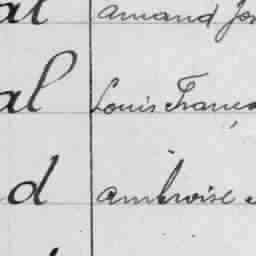 al Amand Jos
al Louis Franço
d Ambroise